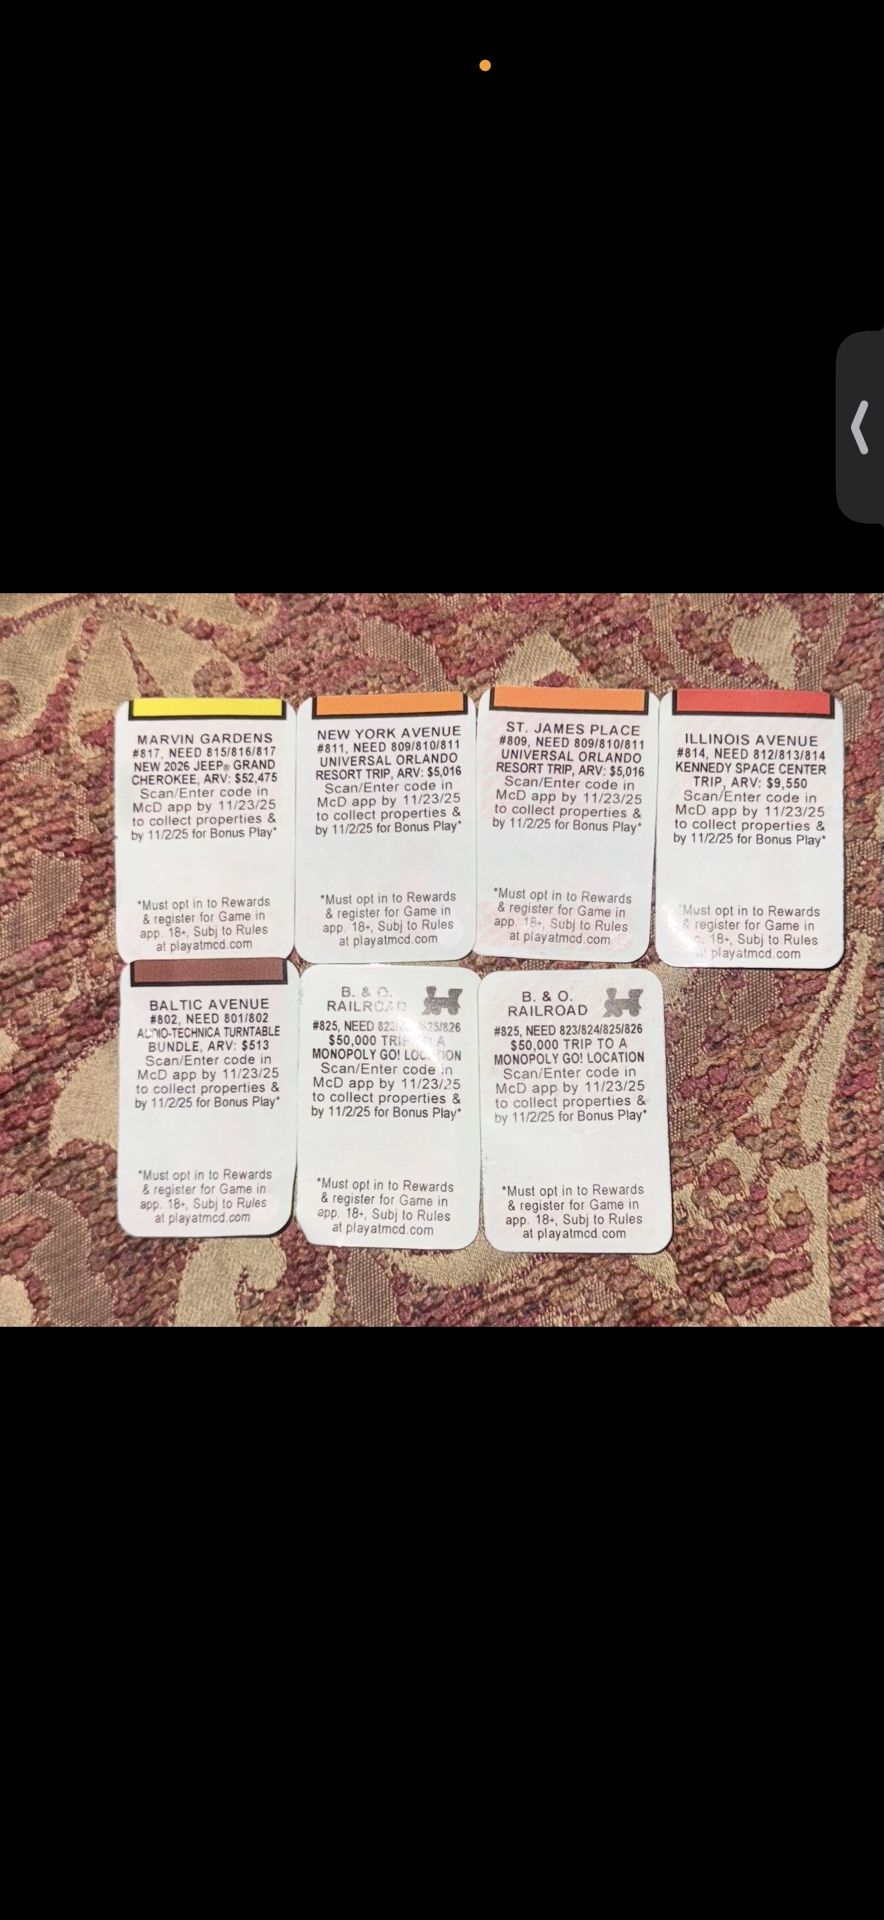 MARVIN GARDENS
#817, NEED 815/816/817
NEW 2026 JEEP® GRAND
CHEROKEE, ARV: $52,475
Scan/Enter code in
McD app by 11/23/25
to collect properties &
by 11/2/25 for Bonus Play*
*Must opt in to Rewards
& register for Game in
app. 18+, Subj to Rules
at playatmcd.com
NEW YORK AVENUE
#811, NEED 809/810/811
UNIVERSAL ORLANDO
RESORT TRIP, ARV: $5,016
Scan/Enter code in
McD app by 11/23/25
to collect properties &
by 11/2/25 for Bonus Play*
*Must opt in to Rewards
& register for Game in
app. 18+, Subj to Rules
at playatmcd.com
ST. JAMES PLACE
#809, NEED 809/810/811
UNIVERSAL ORLANDO
RESORT TRIP, ARV: $5,016
Scan/Enter code in
McD app by 11/23/25
to collect properties &
by 11/2/25 for Bonus Play*
*Must opt in to Rewards
& register for Game in
app. 18+, Subj to Rules
at playatmcd.com
ILLINOIS AVENUE
#814, NEED 812/813/814
KENNEDY SPACE CENTER
TRIP, ARV: $9,550
Scan/Enter code in
McD app by 11/23/25
to collect properties &
by 11/2/25 for Bonus Play*
*Must opt in to Rewards
& register for Game in
18+, Subj to Rules
playatmcd.com
BALTIC AVENUE
#802, NEED 801/802
AUDIO-TECHNICA TURNTABLE
BUNDLE, ARV: $513
Scan/Enter code in
McD app by 11/23/25
to collect properties &
by 11/2/25 for Bonus Play*
*Must opt in to Rewards
& register for Game in
app. 18+, Subj to Rules
at playatmcd.com
B. & O.
RAILROAD
#825, NEED
$50,000 TRIP A
MONOPOLY GO! LOCATION
Scan/Enter code in
McD app by 11/23/25
to collect properties &
by 11/2/25 for Bonus Play*
*Must opt in to Rewards
& register for Game in
app. 18+, Subj to Rules
at playatmcd.com
B. & O.
RAILROAD
#825, NEED 823/824/825/826
$50,000 TRIP TO A
MONOPOLY GO! LOCATION
Scan/Enter code in
McD app by 11/23/25
to collect properties &
by 11/2/25 for Bonus Play*
*Must opt in to Rewards
& register for Game in
app. 18+, Subj to Rules
at playatmcd.com